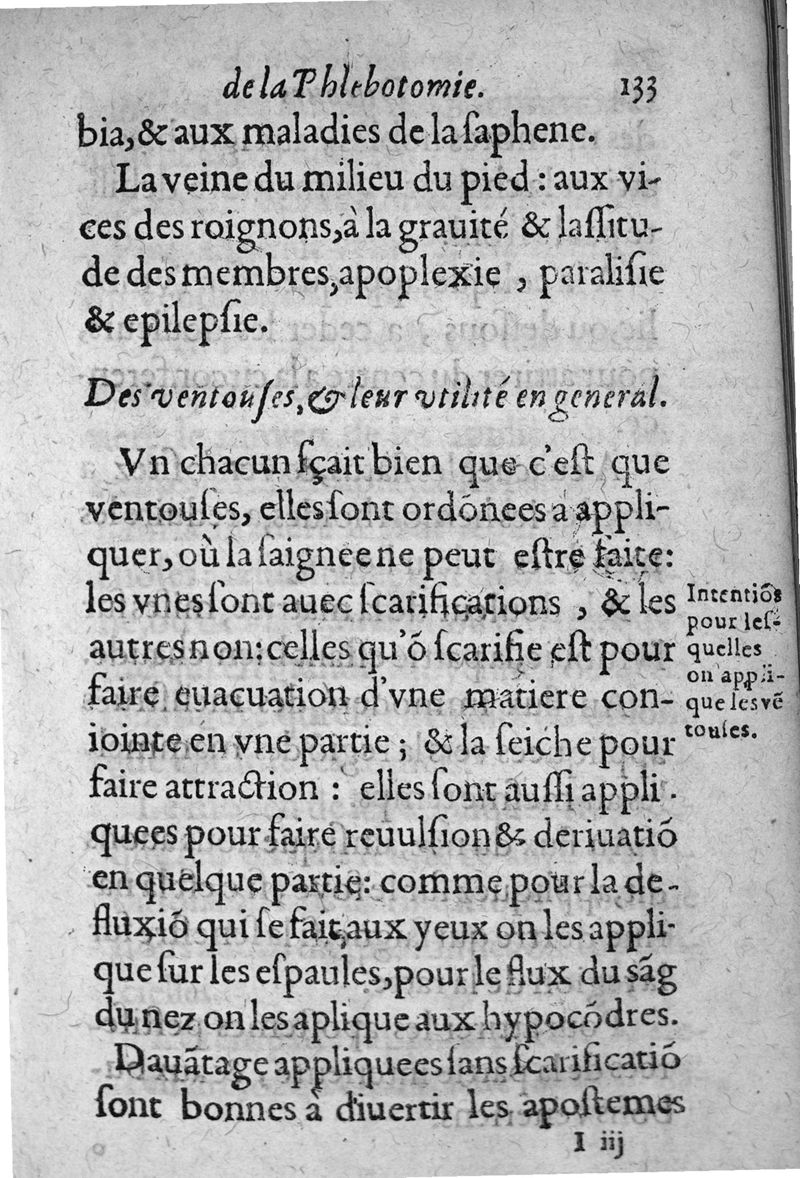 de la Phlebotomie. 133
bia, & aux maladies de la ſaphene.
La veine du milieu du pied : aux vi-
ces des roignons, à la grauité & laſſitu-
de des membres, apoplexie , paraliſie
& epilepſie.
Des ventouſes, & leur vtilité en general.
Vn chacun ſçait bien que c'eſt que
ventouſes, elles ſont ordõnees a appli-
quer, où la ſaignee ne peut eſtre faite:
les vnes ſont auec ſcarifications , & les
autres non: celles qu'õ ſcarifie eſt pour
faire euacuation d'vne matiere con-
iointe en vne partie ; & la ſeiche pour
faire attraction : elles ſont auſſi appli-
quees pour faire reuulſion & deriuatiõ
en quelque partie: comme pour la de-
fluxiõ qui ſe fait aux yeux on les appli-
que ſur les eſpaules, pour le flux du sãg
du nez on les aplique aux hypocõdres.
Dauãtage appliquees ſans ſcarificatiõ
ſont bonnes à diuertir les apoſtemes
I iij
Intentiõs
pour leſ-
quelles
on appli-
que les vẽ
touſes.